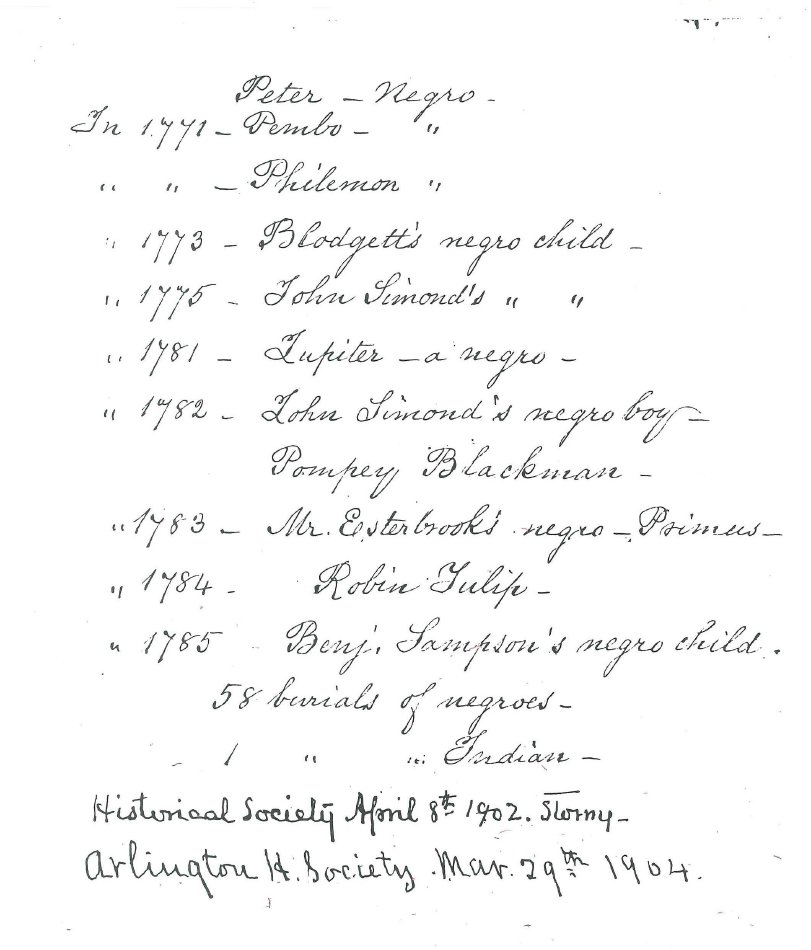 Peter – Negro –
In 1771 – Pembo – "
" " – Philemon "
" 1773 – Blodgett's negro child –
" 1775 – John Simond's " "
" 1781 – Jupiter – a negro –
" 1782 – John Simond's negro boy –
Pompey Blackman –
" 1783 – Mr. Esterbrook's negro – Primus –
" 1784 – Robin Tulip –
" 1785 Benj. Sampson's negro child.
58 burials of negroes –
– 1 " " Indian –
Historical Society April 8th 1902. Stormy –
Arlington H. Society. Mar. 29th 1904.